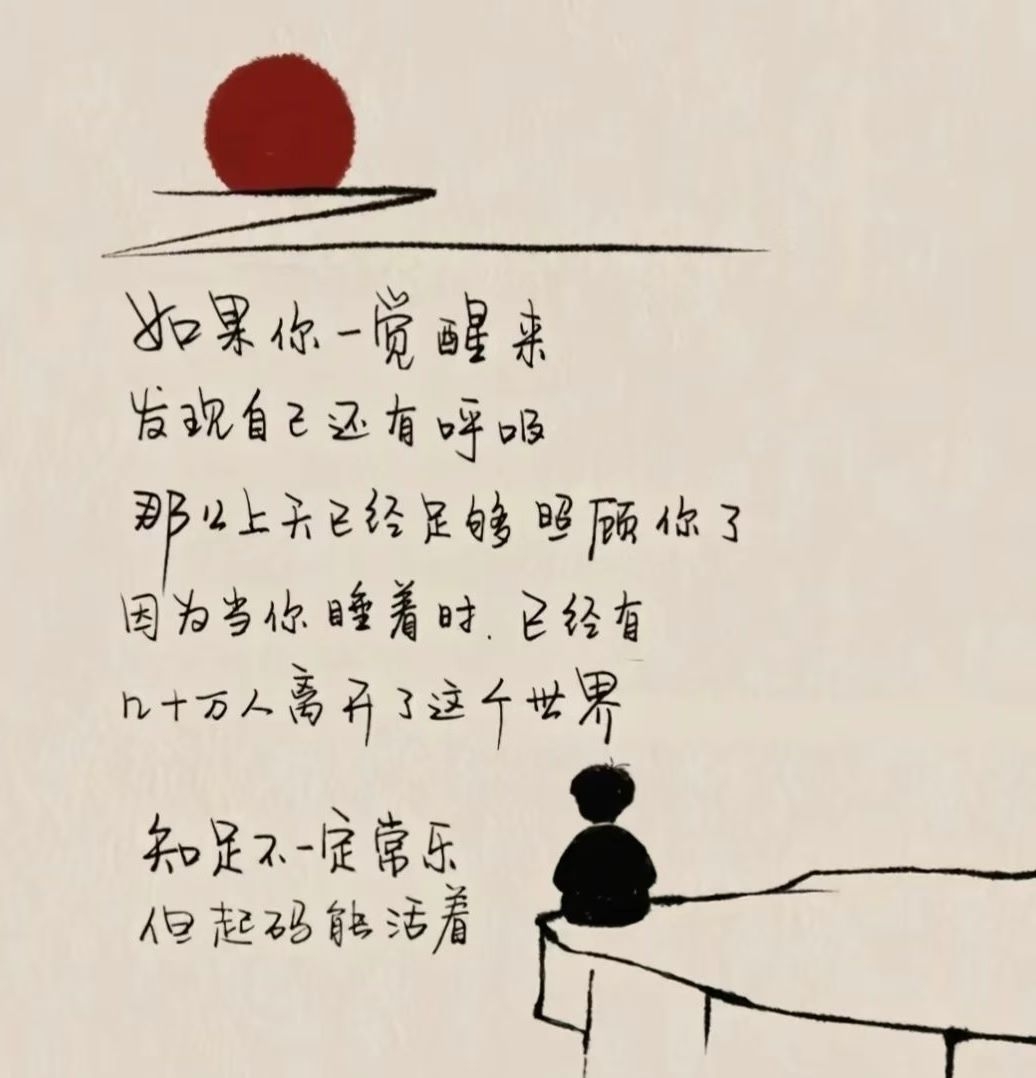 如果你一觉醒来
发现自己还有呼吸
那么上天已经足够照顾你了
因为当你睡着时.已经有
几十万人离开了这个世界
知足不一定常乐
但起码能活着